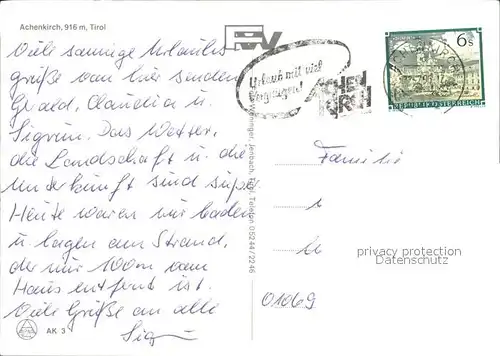 Achenkirch, 916 m, Tirol
Viele sonnige Urlaubs
grüße von hier senden
Gerald, Claudia u.
Sigrun. Das Wetter,
die Landschaft u. die
Unterkunft sind super.
Heute waren wir baden
u. lagen am Strand,
der nur 100m vom
Haus entfernt ist.
Viele Grüße an alle
AK 3
Jenbach, Tirol, Telefon 05244/2246
Urlaub mit viel
Vergnügen!
ACHEN
KIRCH
6 S
REPUBLIK ÖSTERREICH
Familie
privacy protection
Datenschutz
01069